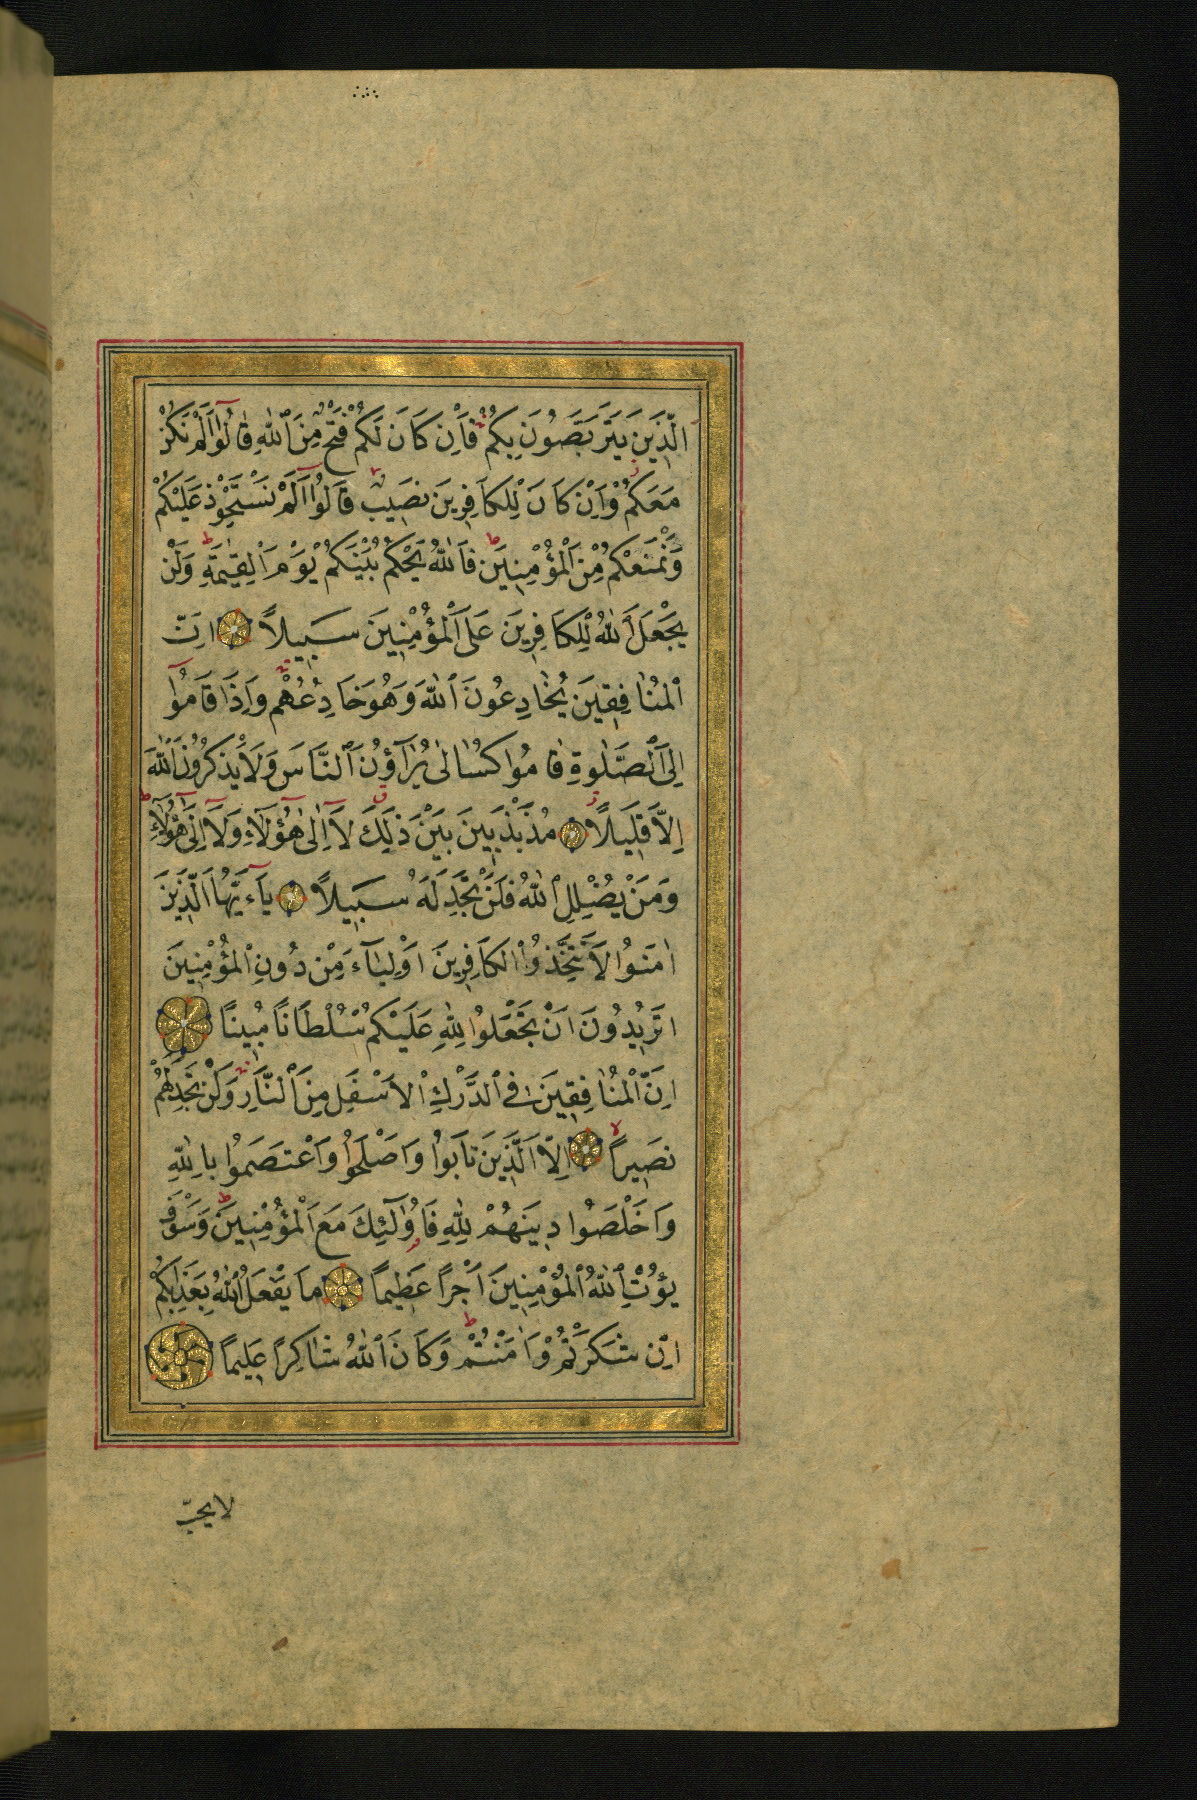 الَّذِينَ يَتَرَبَّصُونَ بِكُمْ فَاِنْ كَانَ لَكُمْ فَتْحٌ مِنَ اللّٰهِ قَالُوٓا اَلَمْ نَكُنْ
مَعَكُمْ وَاِنْ كَانَ لِلْكَافِرِينَ نَصِيبٌ قَالُوٓا اَلَمْ نَسْتَحْوِذْ عَلَيْكُمْ
وَنَمْنَعْكُمْ مِنَ الْمُؤْمِنِينَ فَاللّٰهُ يَحْكُمُ بَيْنَكُمْ يَوْمَ الْقِيٰمَةِ وَلَنْ
يَجْعَلَ اللّٰهُ لِلْكَافِرِينَ عَلَى الْمُؤْمِنِينَ سَبِيلاً اِنَّ
الْمُنَافِقِينَ يُخَادِعُونَ اللّٰهَ وَهُوَ خَادِعُهُمْ وَاِذَا قَامُوٓا
اِلَى الصَّلٰوةِ قَامُوا كُسَالٰى يُرَآؤُنَ النَّاسَ وَلَا يَذْكُرُونَ اللّٰهَ
اِلَّا قَلِيلاً مُذَبْذَبِينَ بَيْنَ ذٰلِكَ لَآ اِلٰى هٰٓؤُلَآءِ وَلَآ اِلٰى هٰٓؤُلَآءِ
وَمَنْ يُضْلِلِ اللّٰهُ فَلَنْ تَجِدَ لَهُ سَبِيلاً يَآءَيُّهَا الَّذِينَ
اٰمَنُوا لَا تَتَّخِذُوا الْكَافِرِينَ اَوْلِيَآءَ مِنْ دُونِ الْمُؤْمِنِينَ
اَتُرِيدُونَ اَنْ تَجْعَلُوا لِلّٰهِ عَلَيْكُمْ سُلْطَانًا مُبِينًا
اِنَّ الْمُنَافِقِينَ فِي الدَّرْكِ الْاَسْفَلِ مِنَ النَّارِ وَلَنْ تَجِدَ لَهُمْ
نَصِيراً اِلَّا الَّذِينَ تَابُوا وَاَصْلَحُوا وَاعْتَصَمُوا بِاللّٰهِ
وَاَخْلَصُوا دِينَهُمْ لِلّٰهِ فَاُولٰٓئِكَ مَعَ الْمُؤْمِنِينَ وَسَوْفَ
يُؤْتِ اللّٰهُ الْمُؤْمِنِينَ اَجْراً عَظِيماً مَا يَفْعَلُ اللّٰهُ بِعَذَابِكُمْ
اِنْ شَكَرْتُمْ وَاٰمَنْتُمْ وَكَانَ اللّٰهُ شَاكِراً عَلِيماً
لا يحبّ